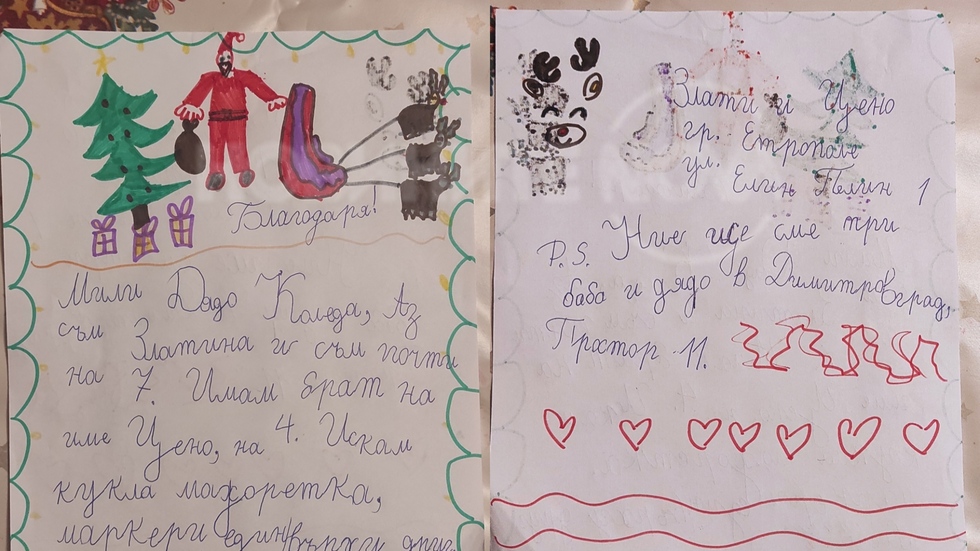 Благодаря!
Мили Дядо Коледа, Аз
съм Златина и съм почти
на 7. Имам брат на
име Цено, на 4. Искам
кукла мажоретка,
маркери един върху друг
Злати и Цено
гр. Етрополе
ул. Елин Пелин 1
P.S. Ние ще сме при
баба и дядо в Димитровград,
Простор 11.